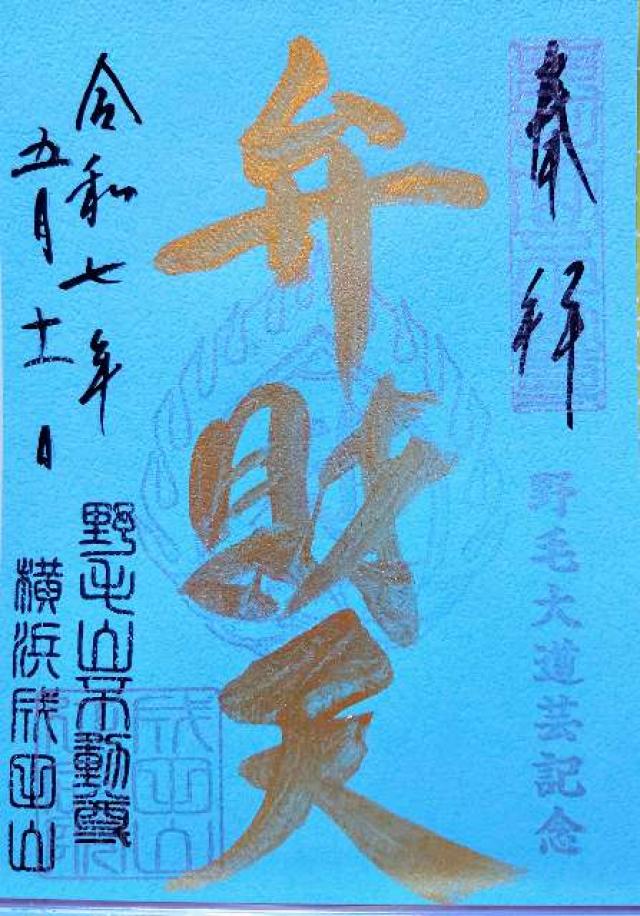 奉拝
野毛大道芸記念
弁財天
令和七年
五月十一日
野毛山不動尊
横浜成田山